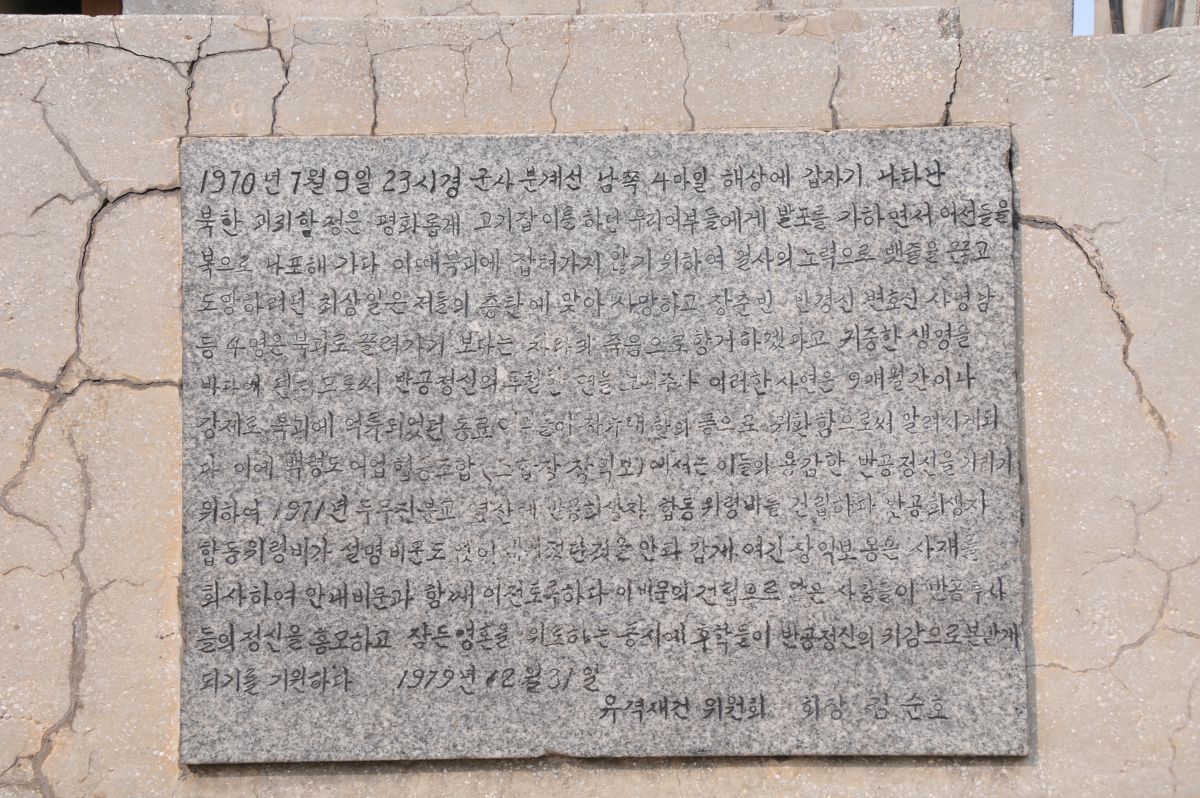 1970년 7월 9일 23시경 군사분계선 남쪽 4마일 해상에 갑자기 나타난
북한 괴뢰함정은 평화롭게 고기잡이를 하던 우리어부들에게 발포를 가하면서 어선들을
북으로 나포해 가다 이때북괴에 잡혀가지 않기 위하여 필사의노력으로 뱃줄을 끊고
도망하려던 최상일은 저들의 총탄에 맞아 사망하고 장춘빈 반경신 변호신 사명남
등 4명은 북괴로 끌려가기 보다는 차라리 죽음으로항거하겠다고 귀중한 생명을
바다에 던지므로써 반공정신의투철한 면을 보여주다 이러한사연은 9개월간이나
강제로 북괴에 억류되었던 동료 자유대한의 품으로 귀환함으로써 알려지게되
다 이에 백령도어업협동조합 에서는 이들의 용감한 반공정신을기리기
위하여 1971년 두무진분교 옆산에 반공희생자 합동위령비를 건립하다 반공희생자
합동위령비가 설명비문도 없이 안타깝게 여긴 장익보 옹은 사재를
희사하여 안내비문과 함께 이전토록하다 이비문의 건립으로 많은 사람들이 반공투사
들의정신을 흠모하고 잠든영혼을 위로하는동시에 후학들이 반공정신의귀감으로본받게
되기를 기원하다 1979년 12월 31일
유격재건 위원회 회장 김순호